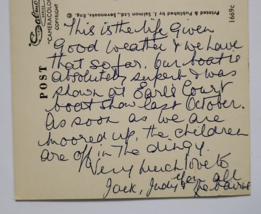 Salmon
"CAMERACOLOUR"
COPYRIGHT
POST
Printed & Published by J. Salmon Ltd., Sevenoaks, Eng.
1669c
This is the life given
Good weather & we have
that so far. Our boat is
absolutely superb & was
shown at Earls Court
boat show last October.
As soon as we are
moored up, the children
are off in the dingy.
Very much love to
them all
Jack, Judy & the